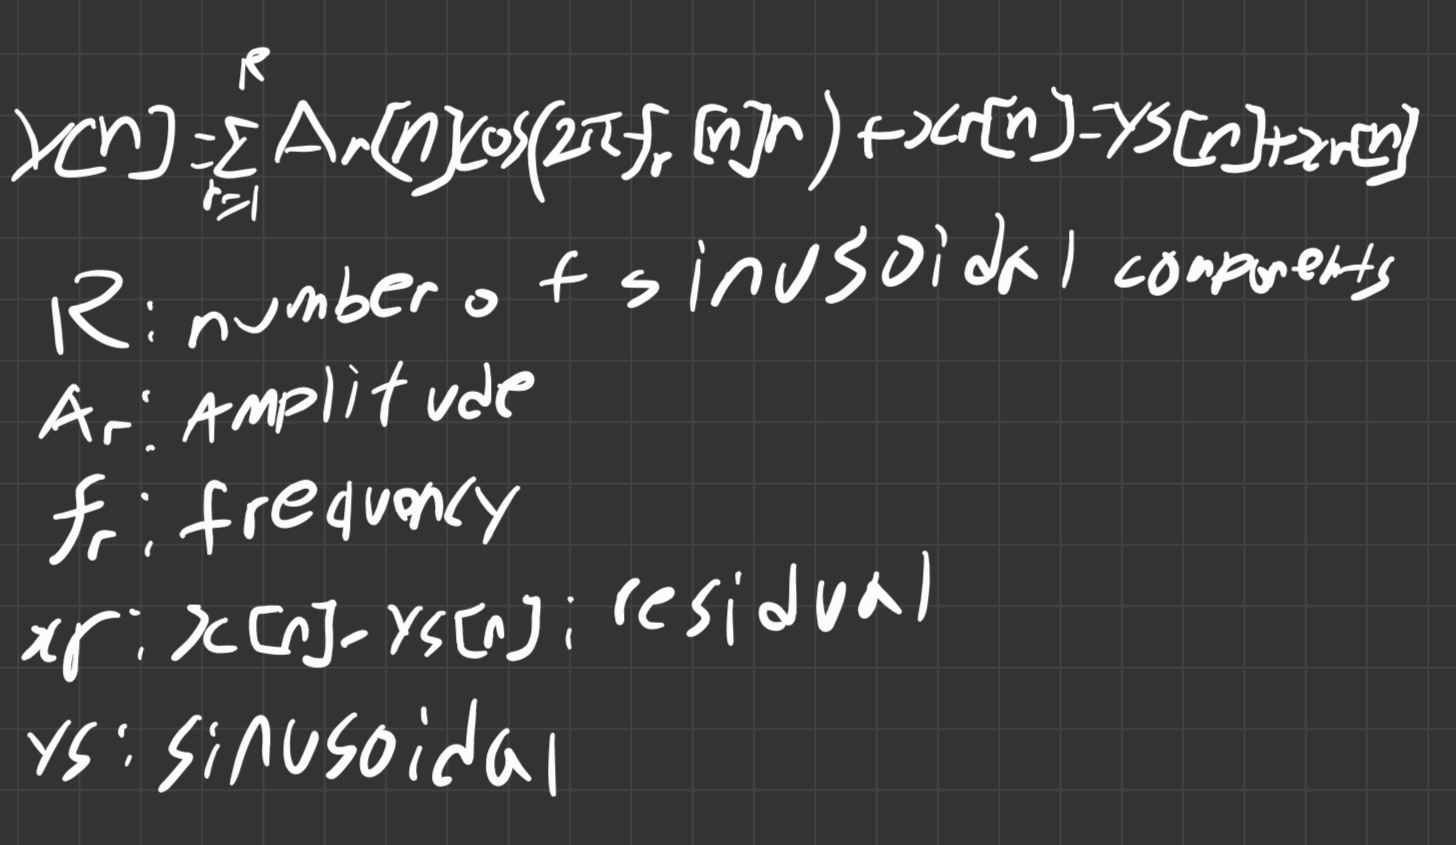 y[n] = Σ_{r=1}^{R} Ar[n]cos(2πfr[n]n) + xr[n] = ys[n] + xr[n]
R: number of sinusoidal components
Ar: Amplitude
fr: frequency
xr: x[n] - ys[n]: residual
ys: sinusoidal